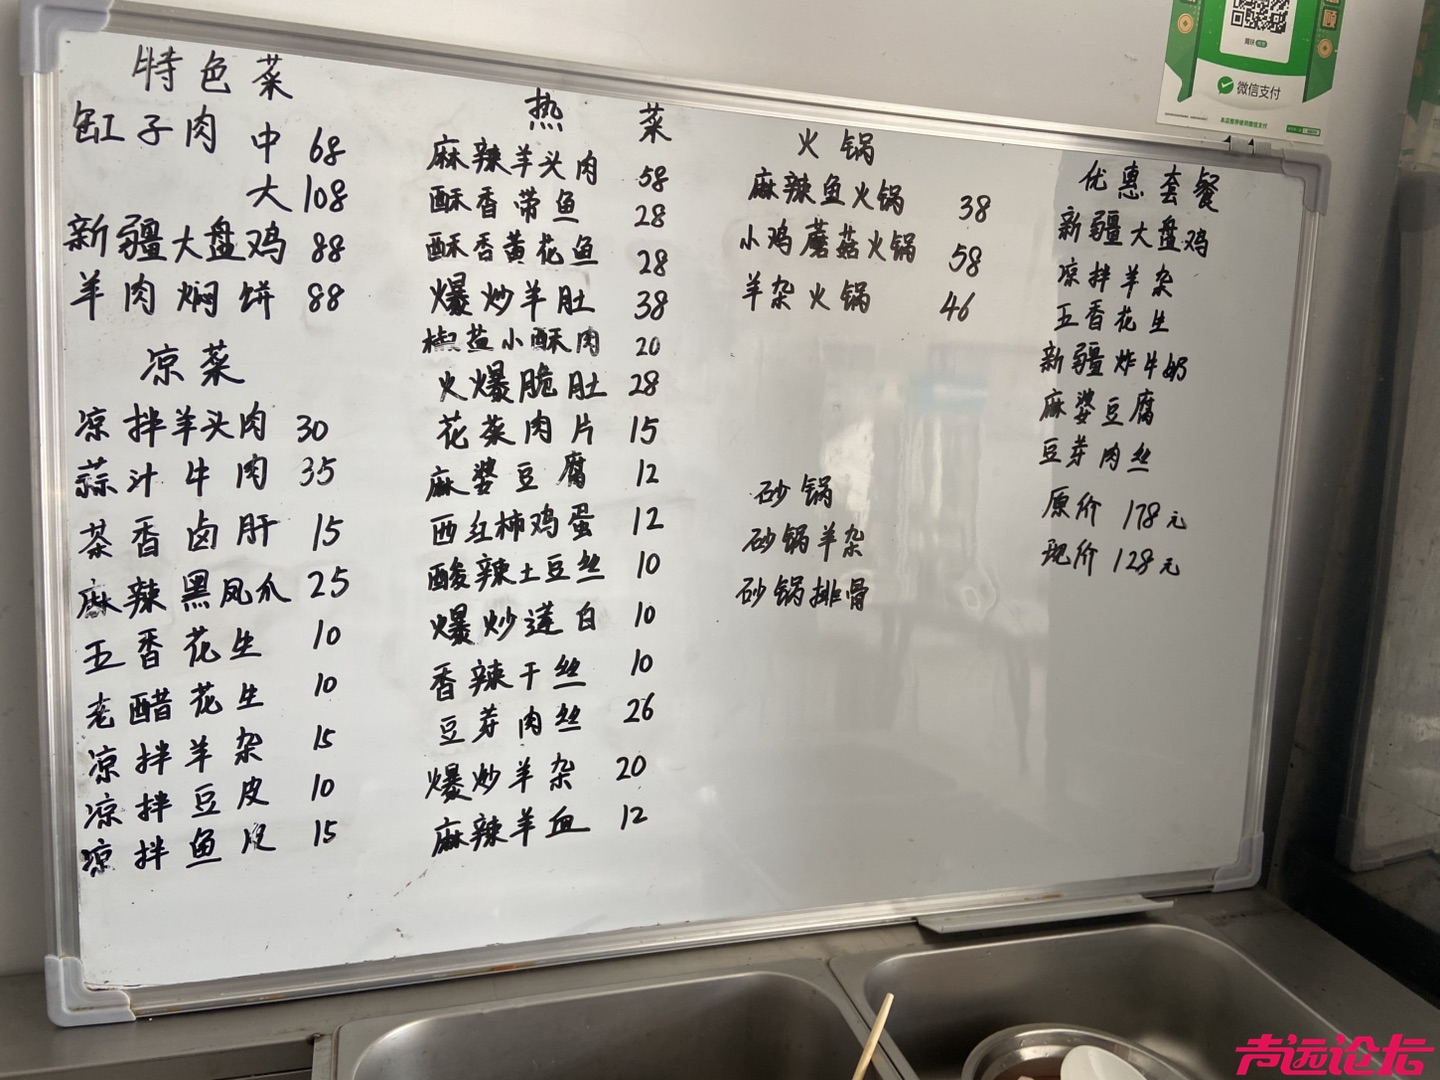 特色菜
缸子肉 中 68
大 108
新疆大盘鸡 88
羊肉焖饼 88
凉菜
凉拌羊头肉 30
蒜汁牛肉 35
茶香卤肝 15
麻辣黑凤爪 25
五香花生 10
老醋花生 10
凉拌羊杂 15
凉拌豆皮 10
凉拌鱼皮 15
热菜
麻辣羊头肉 58
酥香带鱼 28
酥香黄花鱼 28
爆炒羊肚 38
椒盐小酥肉 20
火爆脆肚 28
花菜肉片 15
麻婆豆腐 12
西红柿鸡蛋 12
酸辣土豆丝 10
爆炒莲白 10
香辣干丝 10
豆芽肉丝 26
爆炒羊杂 20
麻辣羊血 12
火锅
麻辣鱼火锅 38
小鸡蘑菇火锅 58
羊杂火锅 46
砂锅
砂锅羊杂
砂锅排骨
优惠套餐
新疆大盘鸡
凉拌羊杂
五香花生
新疆炸牛奶
麻婆豆腐
豆芽肉丝
原价 178元
现价 128元
微信支付
声远论坛